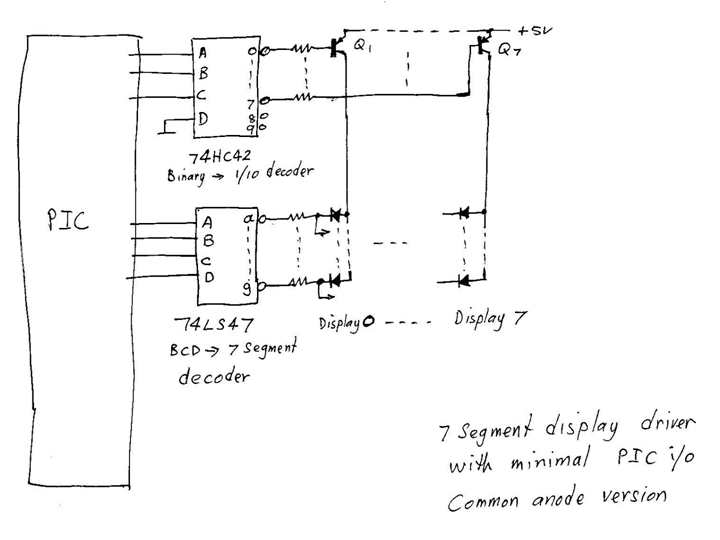 +5V
Q1
Q7
A
B
C
D
0
7
8
9
74HC42
Binary → 1/10 decoder
PIC
A
B
C
D
a
g
74LS47
BCD → 7 Segment
decoder
Display 0 ---- Display 7
7 Segment display driver
with minimal PIC i/o
Common anode version